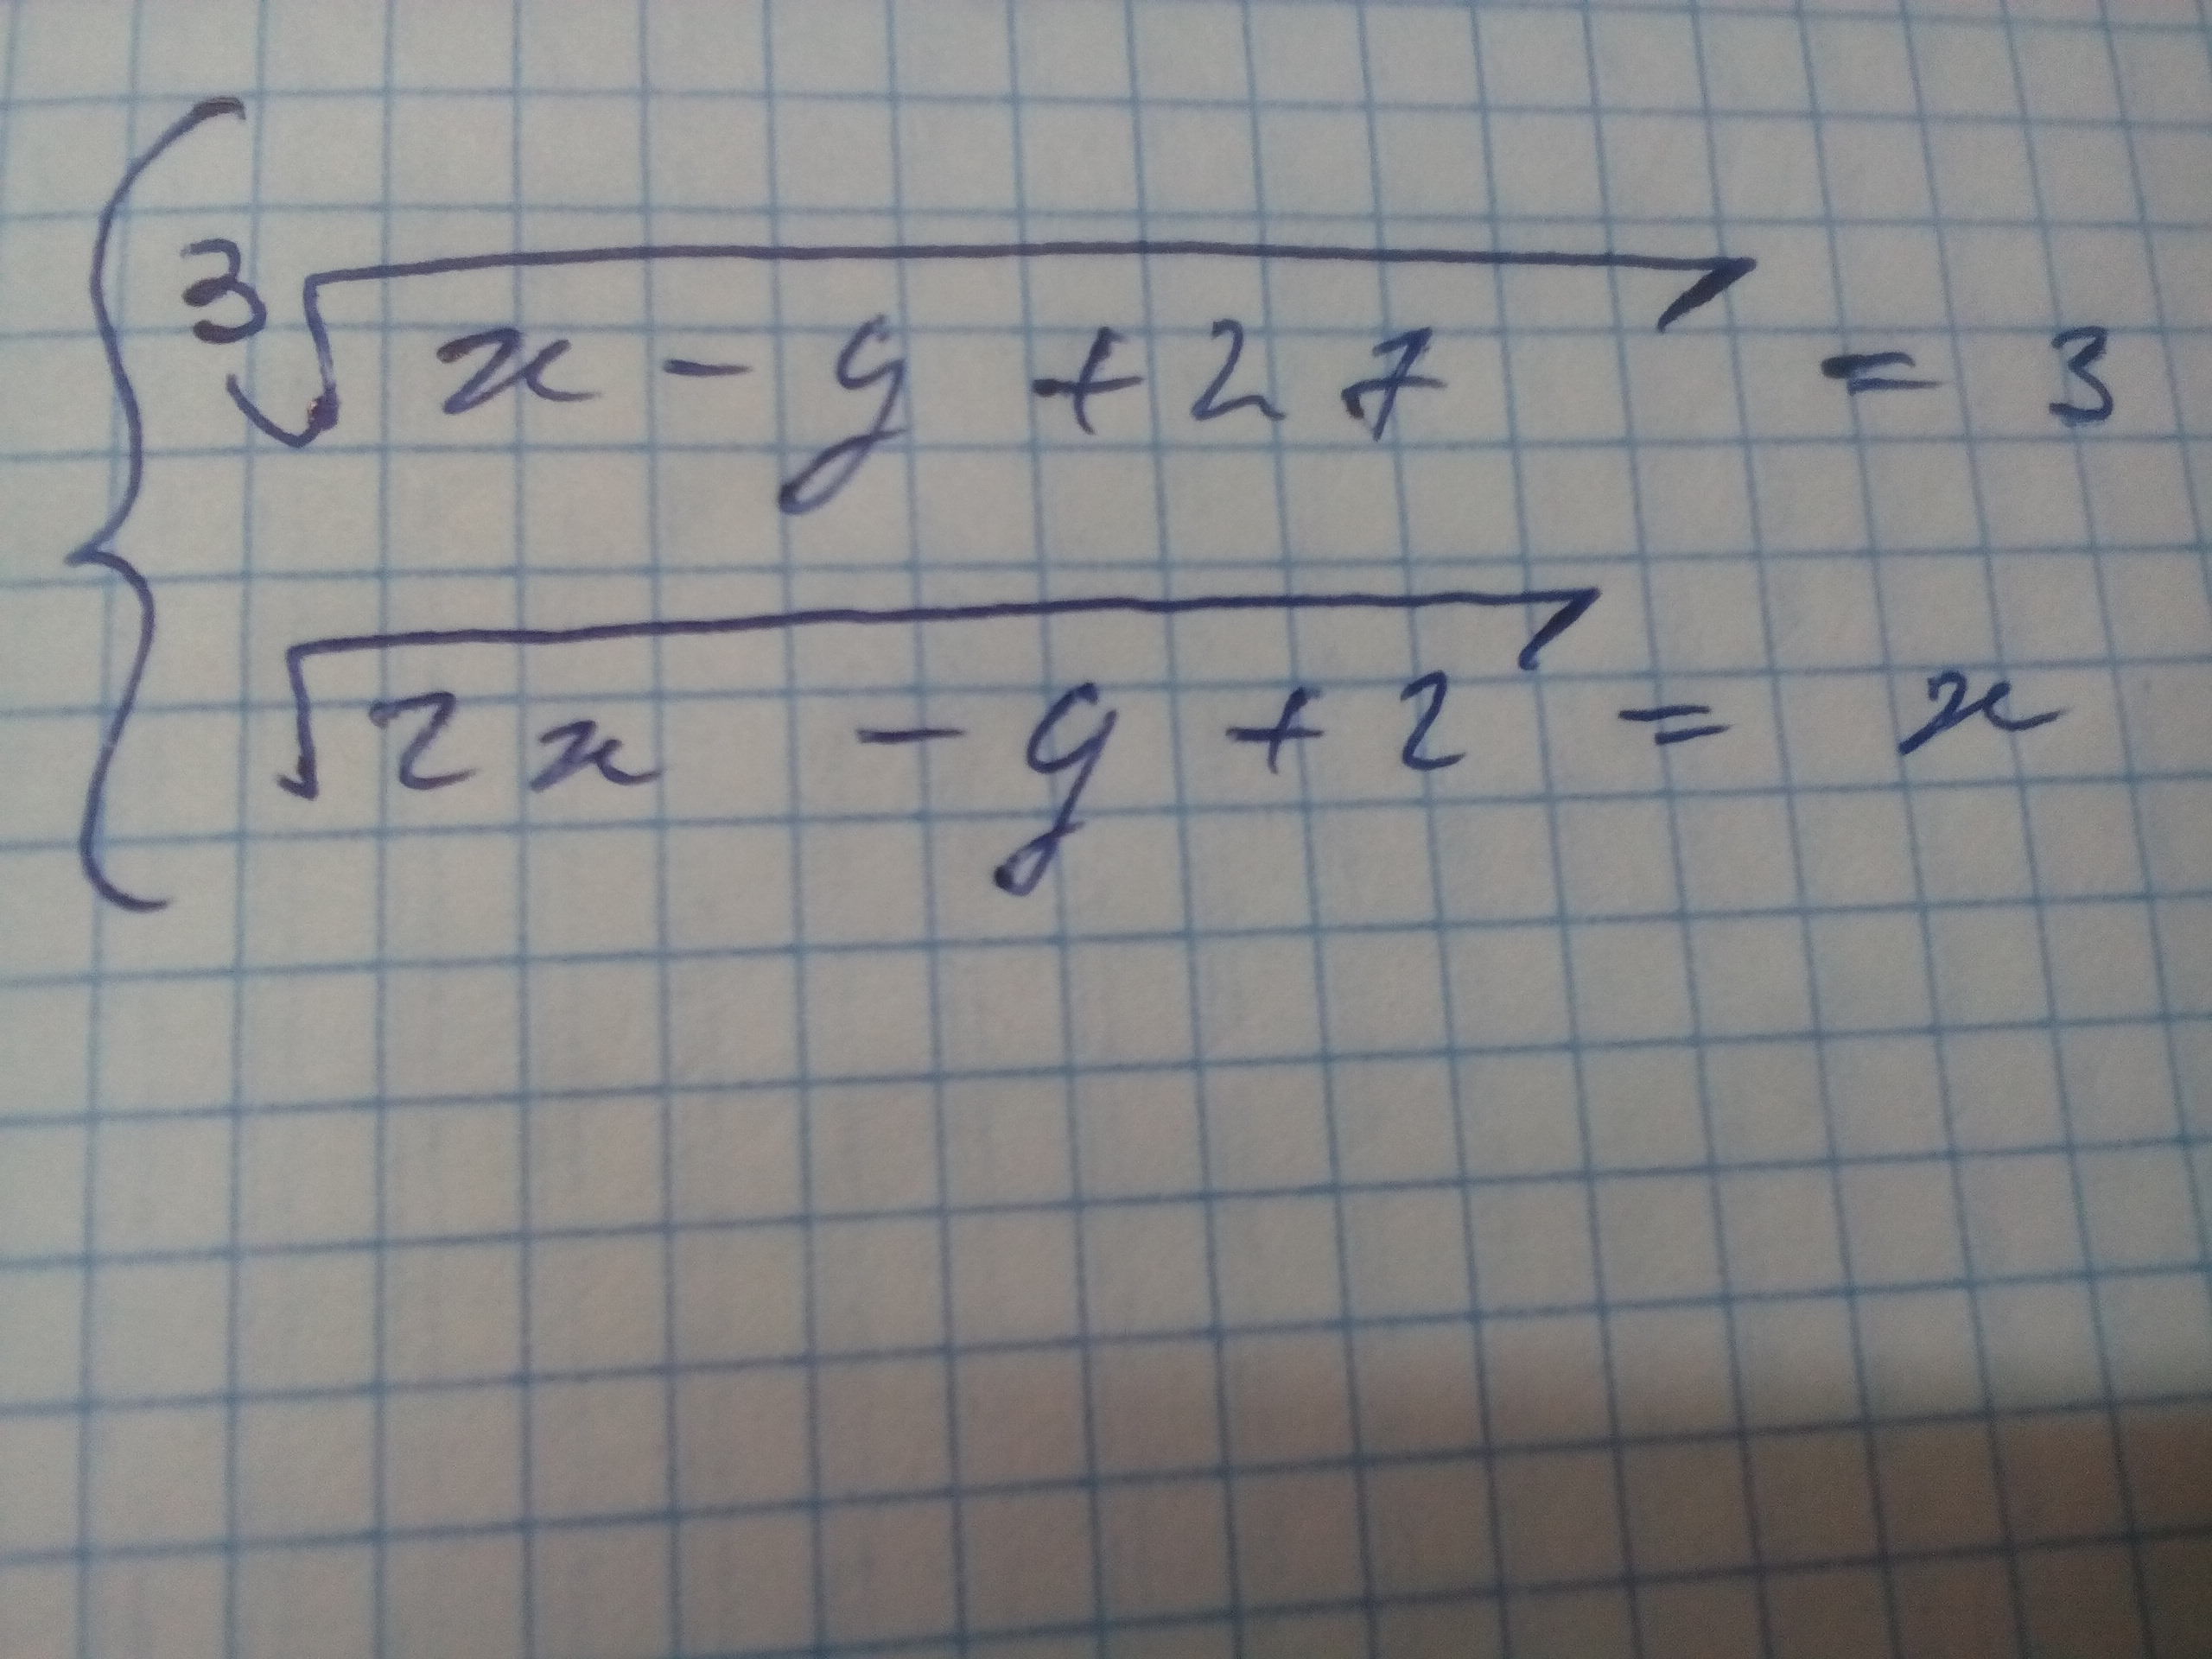 ∛(x - y + 27) = 3
√(2x - y + 2) = x